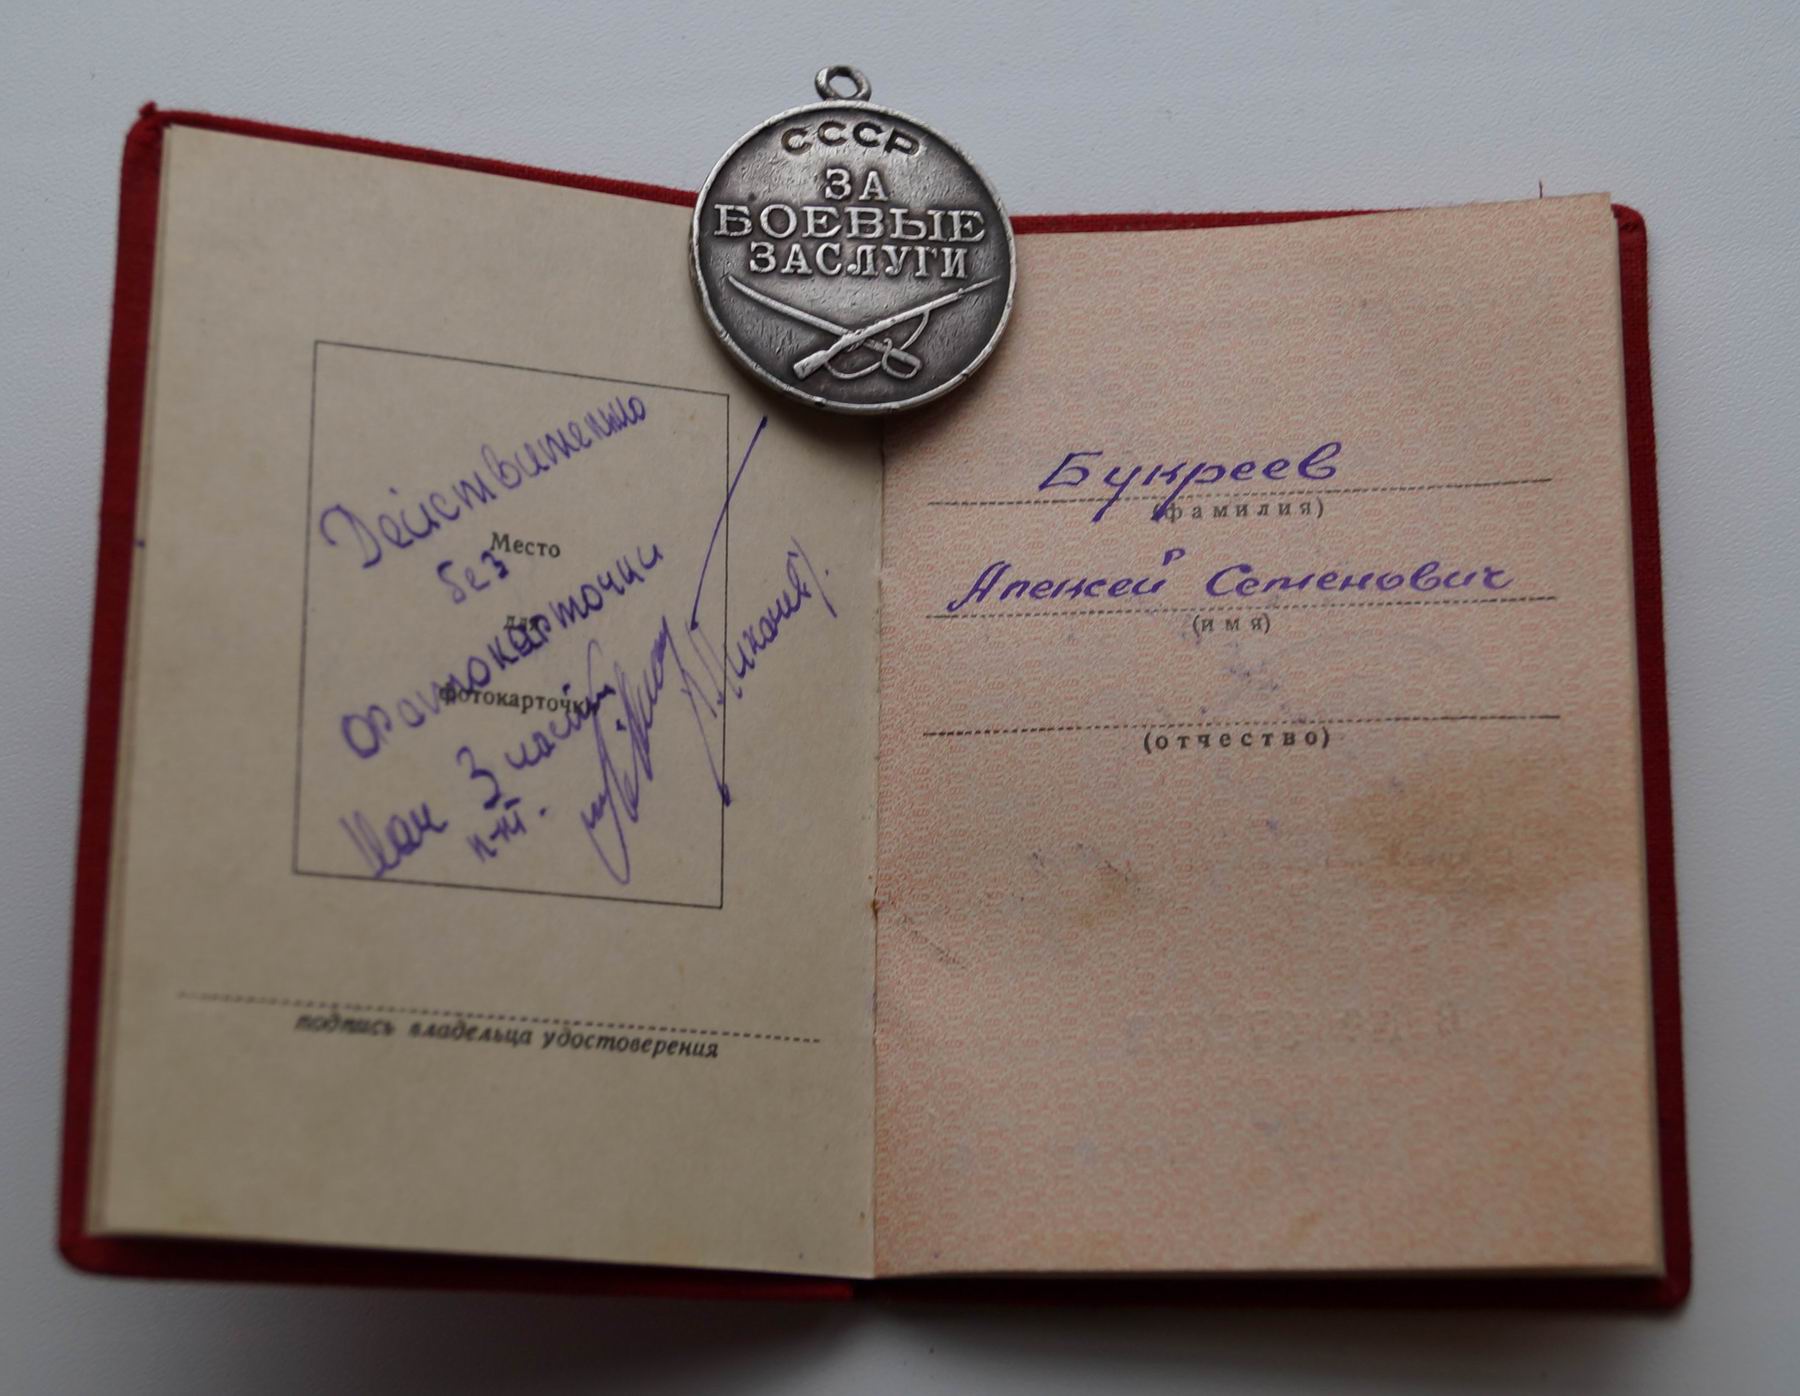 СССР
ЗА
БОЕВЫЕ
ЗАСЛУГИ
Действительно
Место
без
для
фотокарточки
фотокарточки
Нач 3 части
п-к
подпись владельца удостоверения
Букреев
(фамилия)
Алексей Семенович
(имя)
(отчество)